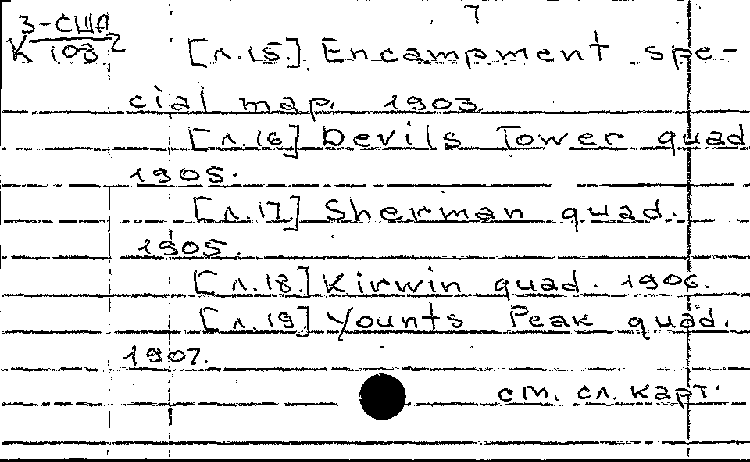 7
3-США
К 103 2
[л.15.] Encampment spe-
cial map. 1903
[л.16] Devils Tower quad
1905.
[л.17] Sherman quad.
1905.
[л.18.] Kirwin quad. 1906.
[л.19] Younts Peak quad.
1907.
см. сл. карт.